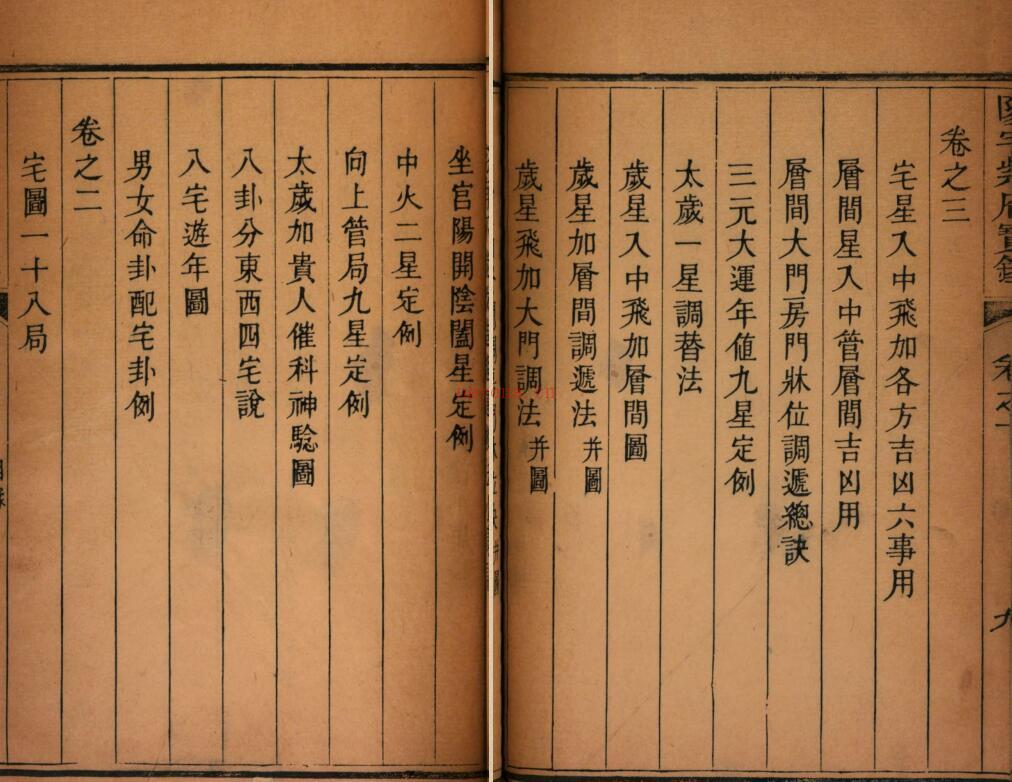 卷之三
宅星入中飛加各方吉凶六事用
層間星入中管層間吉凶用
層間大門房門牀位調遞總訣
三元大運年値九星定例
太歲一星調替法
歲星入中飛加層間圖
歲星加層間調遞法 并圖
歲星飛加大門調法 并圖
坐宫陽開陰闔星定例
中火二星定例
向上管局九星定例
太歲加貴人催科神騐圖
八卦分東西四宅說
八宅遊年圖
男女命卦配宅卦例
卷之二
宅圖一十八局